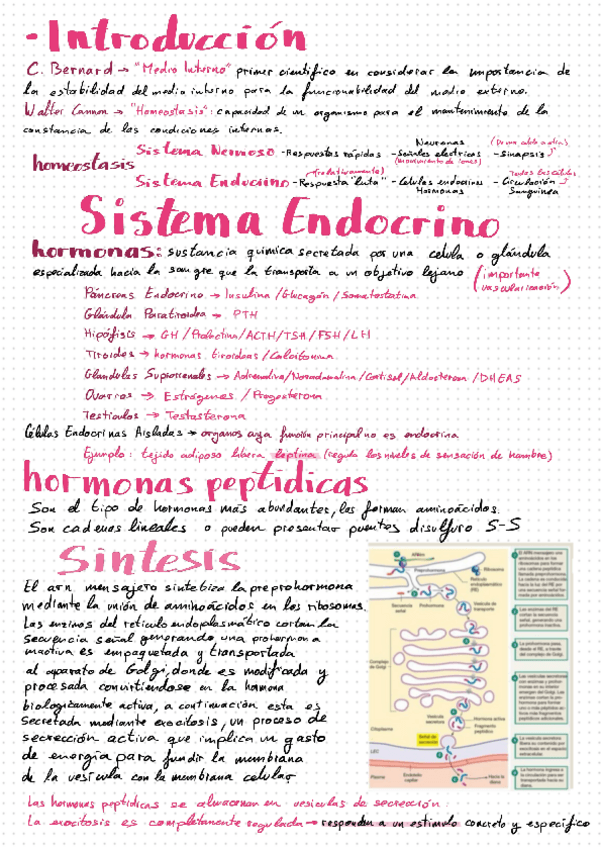 -Introducción
C. Bernard → "Medio Interno" primer científico en considerar la importancia de
la estabilidad del medio interno para la funcionabilidad del medio externo.
Walter Cannon → "Homeostasis": capacidad de un organismo para el mantenimiento de la
constancia de las condiciones internas.
homeostasis
Sistema Nervioso - Respuestas rápidas - Señales eléctricas - Sinapsis
Neuronas
(movimiento de iones)
Sistema Endocrino - Respuesta "lenta" - Células endocrinas - Circulación
(relativamente)
Hormonas
Sanguínea
Sistema Endocrino
hormonas: sustancia química secretada por una celula o glándula
especializada hacia la sangre que la transporta a un objetivo lejano (importante
vascularización)
Páncreas Endocrino → Insulina/Glucagón/Somatostatina
Glándula Paratiroidea → PTH
Hipófisis → GH/Prolactina/ACTH/TSH/FSH/LH
Tiroides → hormonas tiroideas/Calcitonina
Glándulas Suprarrenales → Adrenalina/Noradrenalina/Cortisol/Aldosterona/DHEAS
Ovarios → Estrógenos/Progesterona
Testículos → Testosterona
Células Endocrinas Aisladas → organos cuya función principal no es endocrina
Ejemplo: tejido adiposo libera leptina (regula los niveles de sensación de hambre)
hormonas peptídicas
Son el tipo de hormonas más abundantes, las forman aminoácidos.
Son cadenas lineales o pueden presentar puentes disulfuro S-S
Síntesis
El arn mensajero sintetiza la preprohormona
mediante la unión de aminoácidos en los ribosomas.
Las enzimas del retículo endoplasmático cortan la
secuencia señal generando una prohormona
inactiva es empaquetada y transportada
al aparato de Golgi, donde es modificada y
procesada convirtiéndose en la hormona
biológicamente activa, a continuación esta es
secretada mediante exocitosis, un proceso de
secrección activa que implica un gasto
de energía para fundir la membrana
de la vesícula con la membrana celular
ARNm
Preprohormona
Ribosoma
Retículo
endoplasmático
(RE)
Secuencia
señal
Prohormona
Vesícula de
transporte
Complejo
de Golgi
Vesícula
secretora
Hormona activa
Fragmento
peptídico
Citoplasma
Señal de
secreción
LEC
Plasma
Endotelio
capilar
Hacia la
diana
Las hormonas peptídicas se almacenan en vesículas de secreción
La exocitosis es completamente regulada → responden a un estímulo concreto y específico